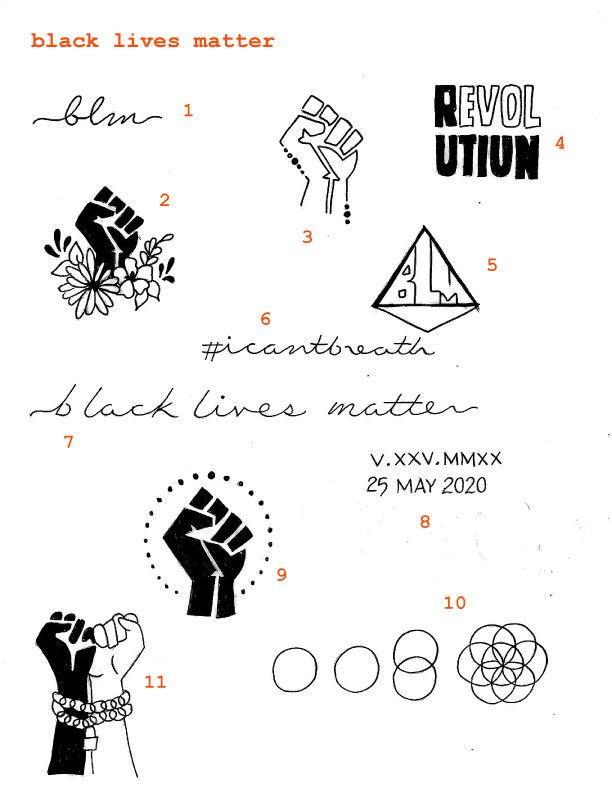 black lives matter
blm 1
REVOL
UTIUN 4
2
3
BLM 5
6
#icantbreath
black lives matter
7
V.XXV.MMXX
25 MAY 2020
8
9
10
11